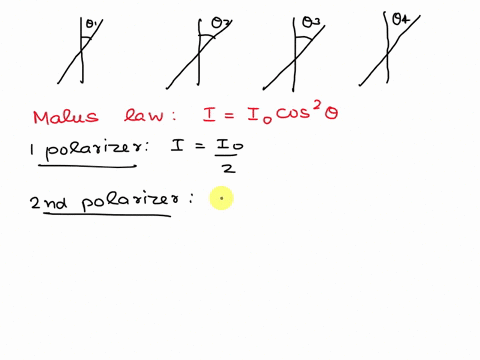 θ1 θ2 θ3 θ4
Malus law: I = I₀cos²θ
1 polarizer: I = I₀/2
2nd polarizer: